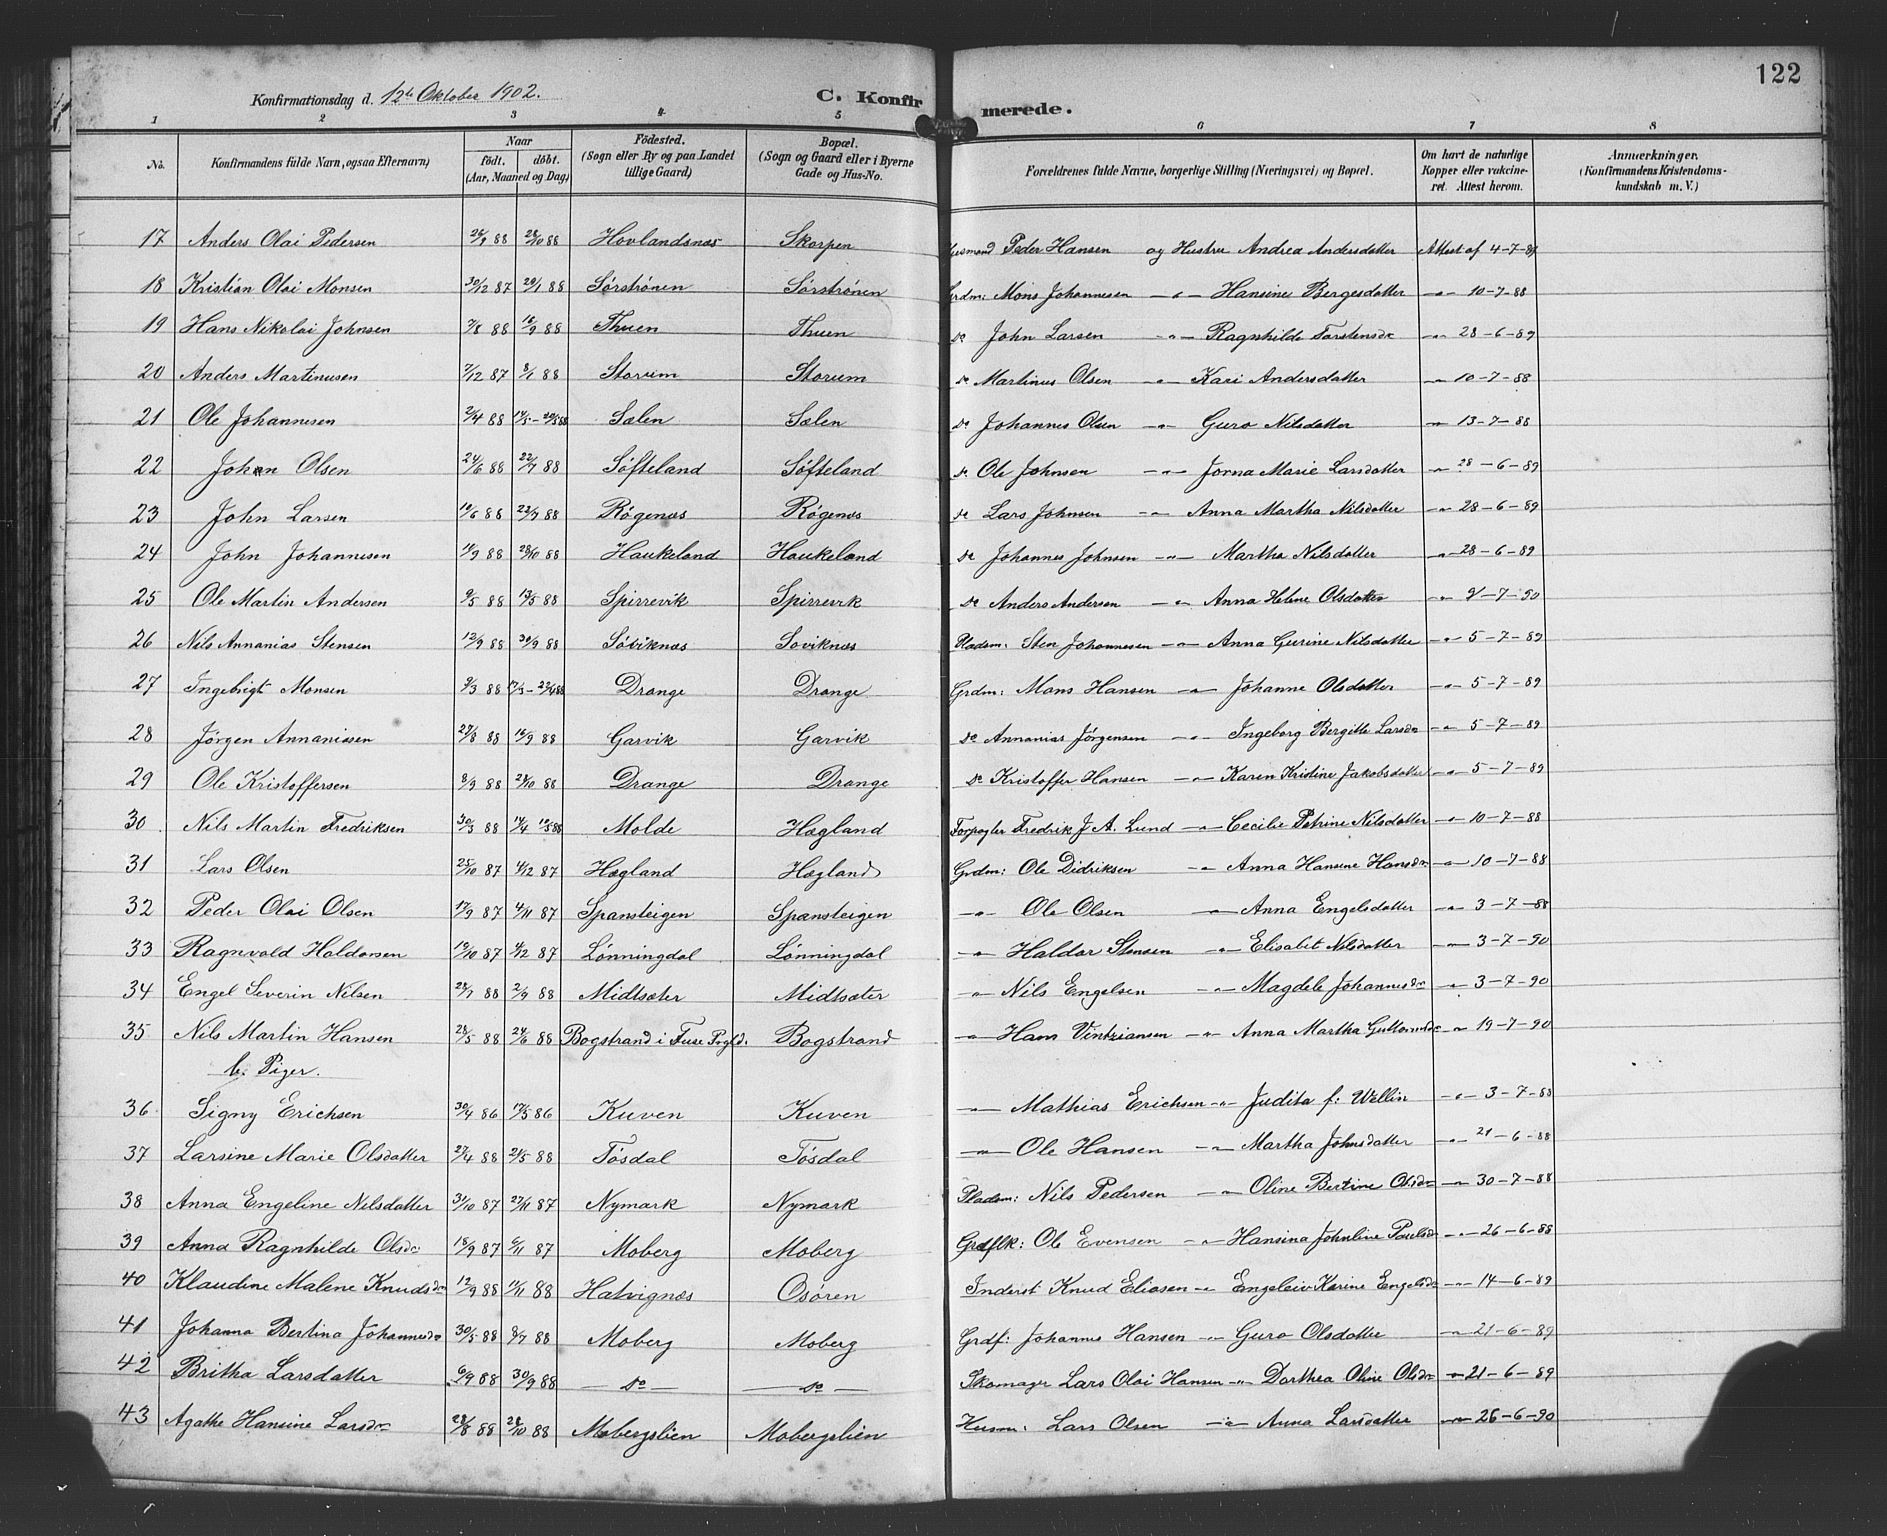 122
Konfirmationsdag d. 12te Oktober 1902. C. Konfirmerede.
1 2 3 4 5 6 7 8
No. Konfirmandens fulde Navn, ogsaa Efternavn) Naar født. døbt. (Aar, Maaned og Dag) Fødested. (Sogn eller By og paa Landet tillige Gaard) Bopæl. (Sogn og Gaard eller i Byerne Gade og Hus-No. Forældrenes fulde Navne, borgerlige Stilling (Næringsvei) og Bopæl. Om havt de naturlige Kopper eller vakcineret. Attest herom. Anmærkninger. (Konfirmandens Kristendomskundskab m. V.)
17 Anders Olai Pedersen 26/9 88 28/10 88 Hovlandsnæs Skorpen Husmand Peder Hansen og Hustru Andrea Andersdatter Attest af 4-7-89
18 Kristian Olai Monsen 30/12 87 29/1 88 Sørstrønen Sørstrønen Grdm: Mons Johannesen -"- Hansine Bergesdatter -"- 10-7-88
19 Hans Nikolai Johnsen 7/8 88 16/9 88 Thuen Thuen do John Larsen -"- Ragnhilde Torstensdr -"- 28-6-89
20 Anders Martinusen 7/12 87 8/1 88 Storum Storum do Martinus Olsen -"- Kari Andersdatter -"- 10-7-88
21 Ole Johannesen 2/4 88 17/5 - 20/5 88 Sælen Sælen do Johannes Olsen -"- Guro Nilsdatter -"- 13-7-88
22 Johan Olsen 24/6 88 22/7 88 Søfteland Søfteland do Ole Johnsen -"- Jorna Marie Larsdatter -"- 28-6-89
23 John Larsen 10/6 88 22/7 88 Røgenæs Røgenæs do Lars Johnsen -"- Anna Martha Nilsdatter -"- 28-6-89
24 John Johannesen 11/9 88 28/10 88 Haukeland Haukeland do Johannes Johnsen -"- Martha Nilsdatter -"- 28-6-89
25 Ole Martin Andersen 9/5 88 13/5 88 Spirrevik Spirrevik do Anders Andersen -"- Anna Helene Olsdatter -"- 9-7-90
26 Nils Annanias Stensen 12/9 88 30/9 88 Søviknæs Soviknæs Pladsm: Sten Johannesen -"- Anna Gurine Nilsdatter -"- 5-7-89
27 Ingebrigt Monsen 9/3 88 17/3 - 22/4 88 Drange Drange Grdm: Mons Hansen -"- Johanne Olsdatter -"- 5-7-89
28 Jørgen Annaniasen 27/8 88 16/9 88 Garvik Garvik do Annanias Jørgensen -"- Ingeborg Bergitte Larsdr -"- 5-7-89
29 Ole Kristoffersen 8/9 88 28/10 88 Drange Drange do Kristoffer Hansen -"- Karen Kristine Jakobsdatter -"- 5-7-89
30 Nils Martin Fredriksen 30/3 88 14/4 13/5 88 Molde Hægland Forpagter Fredrik J A. Lund -"- Cecilie Petrine Nilsdatter -"- 10-7-88
31 Lars Olsen 25/10 87 4/12 87 Hægland Hægland Grdm: Ole Didriksen -"- Anna Hansine Hansdr -"- 10-7-88
32 Peder Olai Olsen 17/9 87 4/11 87 Spansteigen Spansteigen -"- Ole Olsen -"- Anna Engelsdatter -"- 3-7-88
33 Ragnvald Haldorsen 19/10 87 4/12 87 Lønningdal Lønningdal -"- Haldor Stensen -"- Elisabet Nilsdatter -"- 3-7-90
34 Engel Severin Nilsen 28/7 88 2/9 88 Midtsæter Midtsæter -"- Nils Engelsen -"- Magdele Johannesdr -"- 3-7-90
35 Nils Martin Hansen 28/5 88 24/6 88 Bogstrand i Fuse Prgld. Bogstrand -"- Hans Vintziansen -"- Anna Martha Guttormsdr -"- 19-7-90
b. Piger.
36 Signy Erichsen 30/4 86 17/5 86 Kuven Kuven -"- Mathias Erichsen -"- Judita f: Wellin -"- 3-7-88
37 Larsine Marie Olsdatter 27/4 88 21/5 88 Tøsdal Tøsdal -"- Ole Hansen -"- Martha Johnsdatter -"- 21-6-88
38 Anna Engeline Nilsdatter 31/10 87 27/11 87 Nymark Nymark Pladsm: Nils Pedersen -"- Oline Bertine Olsdr -"- 30-7-88
39 Anna Ragnhilde Olsdr 18/9 87 6/11 87 Moberg Moberg Grdflk: Ole Evensen -"- Hansina Johnline Poulsdr -"- 26-6-88
40 Klaudine Malene Knudsdr 12/9 88 11/11 88 Hatvignæs Osøren Inderst Knud Eliasen -"- Engeleiv Karine Engelsdr -"- 14-6-89
41 Johanna Bertina Johannesdr 30/5 88 8/7 88 Moberg Moberg Grdf: Johannes Hansen -"- Guro Olsdatter -"- 21-6-89
42 Britha Larsdatter 6/9 88 30/9 88 - do - - do - Skomager Lars Olai Hansen -"- Dorthea Oline Olsdr -"- 21-6-89
43 Agathe Hansine Larsdr 28/8 88 28/10 88 Mobergslien Mobergslien Husm: Lars Olsen -"- Anna Larsdatter -"- 26-6-90